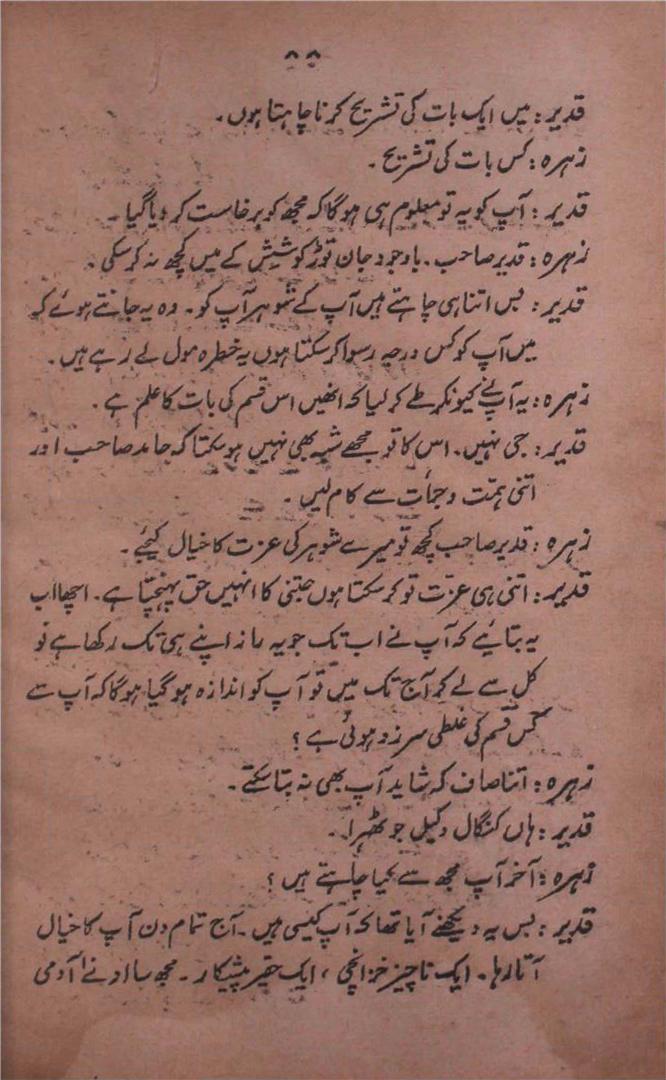 ۸۸
قدیر : میں ایک بات کی تشریح کرنا چاہتا ہوں۔
زہرہ : کس بات کی تشریح۔
قدیر : آپ کو یہ تو معلوم ہی ہوگا کہ مجھ کو برخاست کر دیا گیا۔
زہرہ : قدیر صاحب۔ باوجود جان توڑ کوشیش کے میں کچھ نہ کرسکی۔
قدیر : بس اتنا ہی چاہتے ہیں آپ کے شوہر آپ کو۔ وہ یہ جانتے ہوئے کہ
میں آپ کو کس درجہ رسوا کرسکتا ہوں یہ خطرہ مول لے رہے ہیں۔
زہرہ : یہ آپ نے کیونکر طے کر لیا کہ انھیں اس قسم کی بات کا علم ہے۔
قدیر : جی نہیں۔ اس کا تو مجھے شبہ بھی نہیں ہوسکتا کہ حامد صاحب اور
اتنی ہمّت و جرأت سے کام لیں۔
زہرہ : قدیر صاحب کچھ تو میرے شوہر کی عزت کا خیال کیجیے۔
قدیر : اتنی ہی عزّت تو کرسکتا ہوں جتنی کا انہیں حق پہنچتا ہے۔ اچھا اب
یہ بتائیے کہ آپ نے اب تک جو یہ راز اپنے ہی تک رکھا ہے تو
کل سے لے کر آج تک میں تو آپ کو اندازہ ہوگیا ہوگا کہ آپ سے
کس قسم کی غلطی سرزد ہوئی ہے؟
زہرہ : اتنا صاف کہ شاید آپ بھی نہ بتا سکتے۔
قدیر : ہاں کنگال وکیل جو ٹھہرا۔
زہرہ : آخر آپ مجھ سے کیا چاہتے ہیں؟
قدیر : بس یہ دیکھنے آیا تھا کہ آپ کیسی ہیں۔ آج تمام دن آپ کا خیال
آتا رہا۔ ایک ناچیز خزانچی ، ایک حقیر پیشکار۔ مجھ سا ادنےٰ آدمی